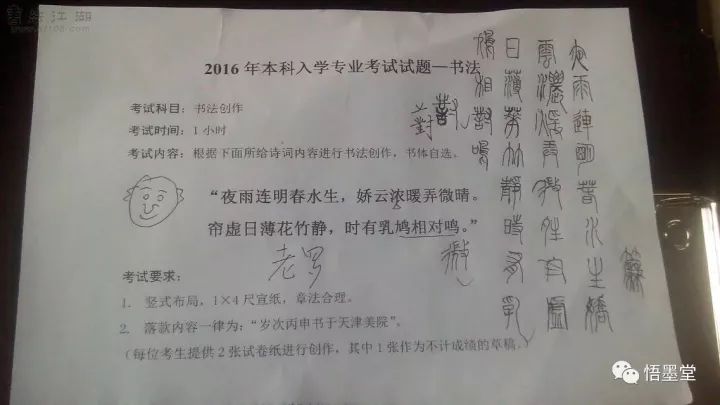 書法江湖
2016 年本科入学专业考试试题—书法
考试科目：书法创作
考试时间：1 小时
考试内容：根据下面所给诗词内容进行书法创作，书体自选。
“夜雨连明春水生，娇云浓暖弄微晴。
帘虚日薄花竹静，时有乳鸠相对鸣。”
考试要求：
1. 竖式布局，1×4 尺宣纸，章法合理。
2. 落款内容一律为：“岁次丙申书于天津美院”。
（每位考生提供 2 张试卷纸进行创作，其中 1 张作为不计成绩的草稿。）
夜雨連明春水生嬌
雲濃煖弄微虛
日薄華竹靜時有乳
鳩相對鳴
對
老罗
微
悟墨堂